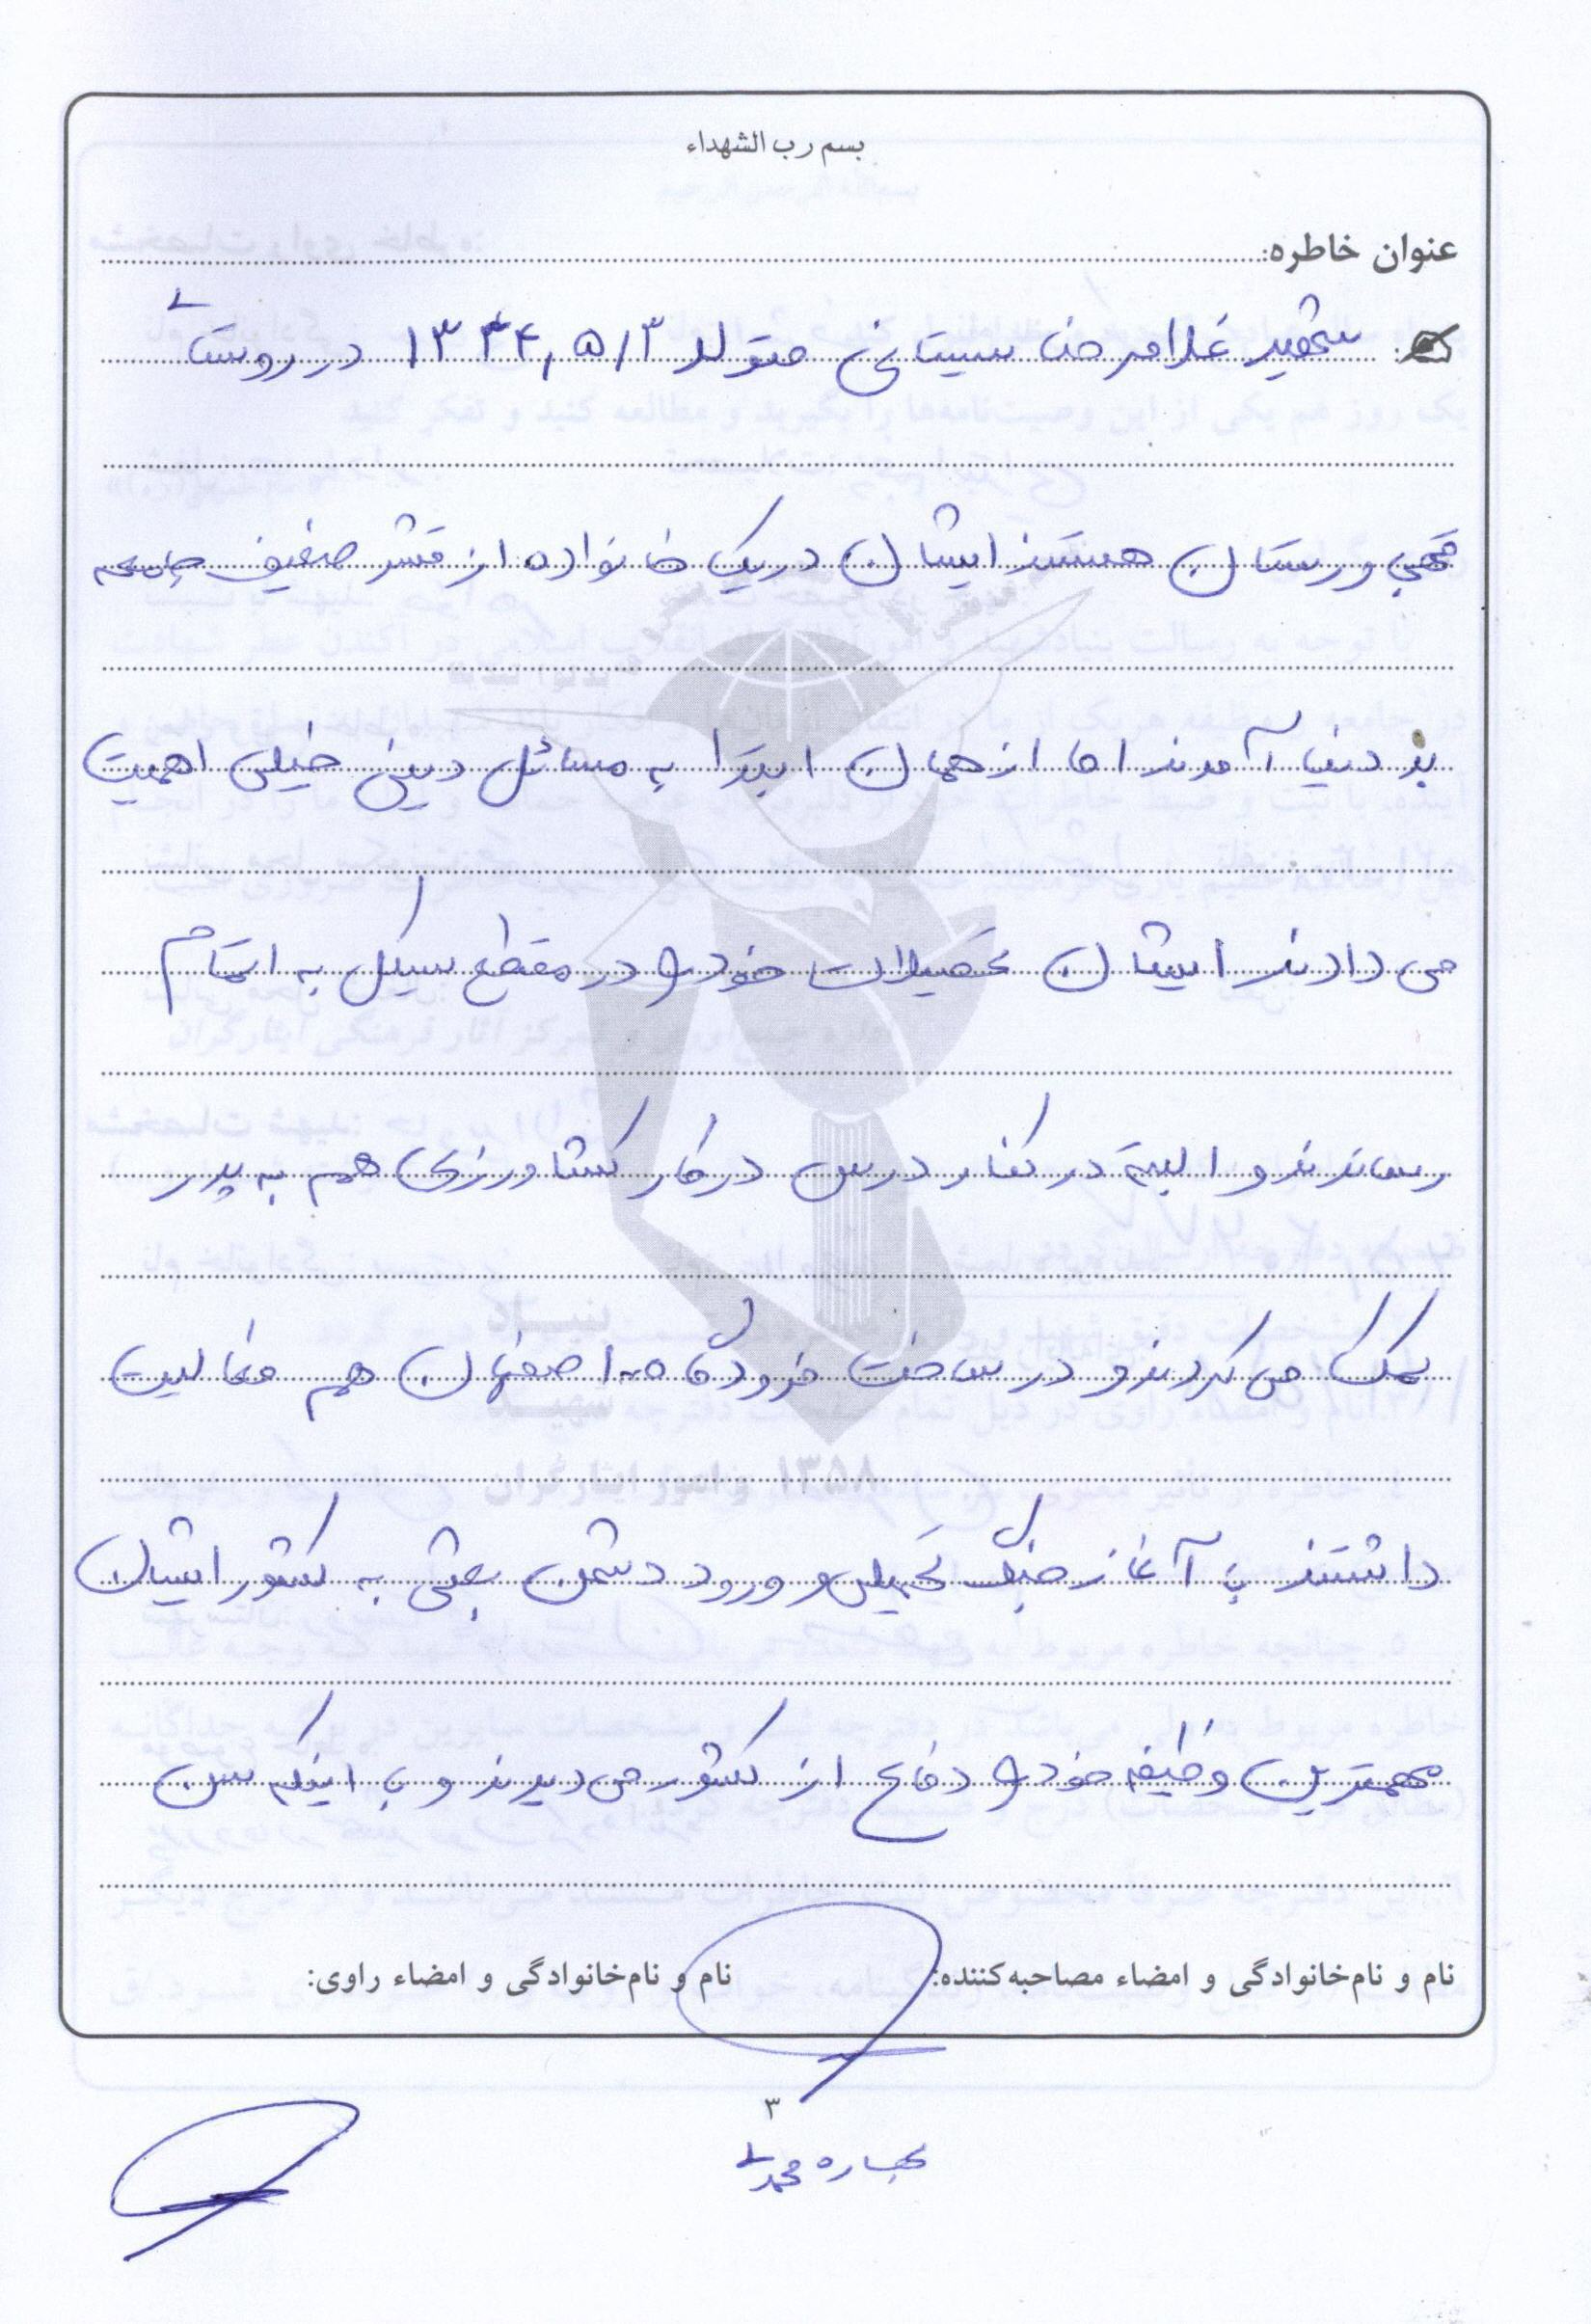 بسم رب الشهداء
عنوان خاطره:
شهید غلامرضا سیستانی متولد ۱۳۴۴,۵/۳ در روستای
قهجاورستان هستند ایشان در یک خانواده از قشر ضعیف جامعه
به دنیا آمدند اما از همان ابتدا به مسائل دینی خیلی اهمیت
می دادند ایشان تحصیلات خود را در مقطع سیکل به اتمام
رساندند و البته در کنار درس در کار کشاورزی هم به پدر
کمک می کردند و در ساخت فرودگاه اصفهان هم فعالیت
داشتند با آغاز جنگ تحمیلی و ورود دشمن بعثی به کشور ایشان
مهمترین وظیفه خود را دفاع از کشور می دیدند و با اینکه سن
نام و نام‌خانوادگی و امضاء مصاحبه‌کننده:
نام و نام‌خانوادگی و امضاء راوی:
۳
محمدی
بنیاد شهید و امور ایثارگران
۱۳۵۸